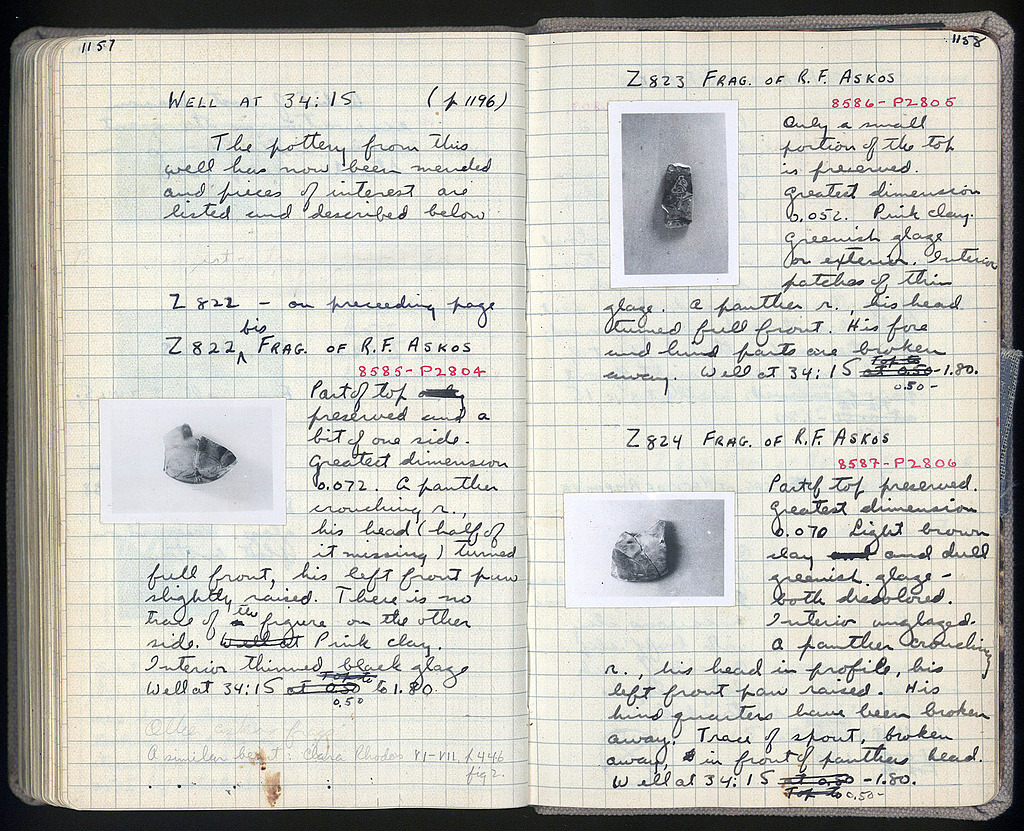 1157
WELL AT 34:15 (p 1196)
The pottery from this
well has now been mended
and pieces of interest are
listed and described below
Z 822 - on preceeding page
bis
Z 822 ∧ FRAG. OF R.F. ASKOS
8585-P2804
Part of top
preserved and a
bit of one side.
Greatest dimension
0.072. A panther
crouching r.,
his head (half of
it missing) turned
full front, his left front paw
slightly raised. There is no
the
trace of figure on the other
side. Well at Pink clay.
Interior thinned black glaze
Top to
Well at 34:15 at 0.50 to 1.80.
0.50
A similar beast: Clara Rhodos VI-VII, p. 446
fig 2.
1158
Z 823 FRAG. OF R.F. ASKOS
8586-P2805
Only a small
portion of the top
is preserved.
Greatest dimension
0.052. Pink clay.
Greenish glaze
on exterior. Interior
patches of thin
glaze. A panther r., his head
turned full front. His fore
and hind parts are broken
Top to
away. Well at 34:15 at 0.50 -1.80.
0.50-
Z 824 FRAG. OF R.F. ASKOS
8587-P2806
Part of top preserved.
Greatest dimension
0.070 Light brown
clay and and dull
greenish glaze -
both discolored.
Interior unglazed.
A panther crouching
r., his head in profile, his
left front paw raised. His
hind quarters have been broken
away. Trace of spout, broken
away, in front of panthers head.
Well at 34:15 at 0.50 -1.80.
Top to 0.50-